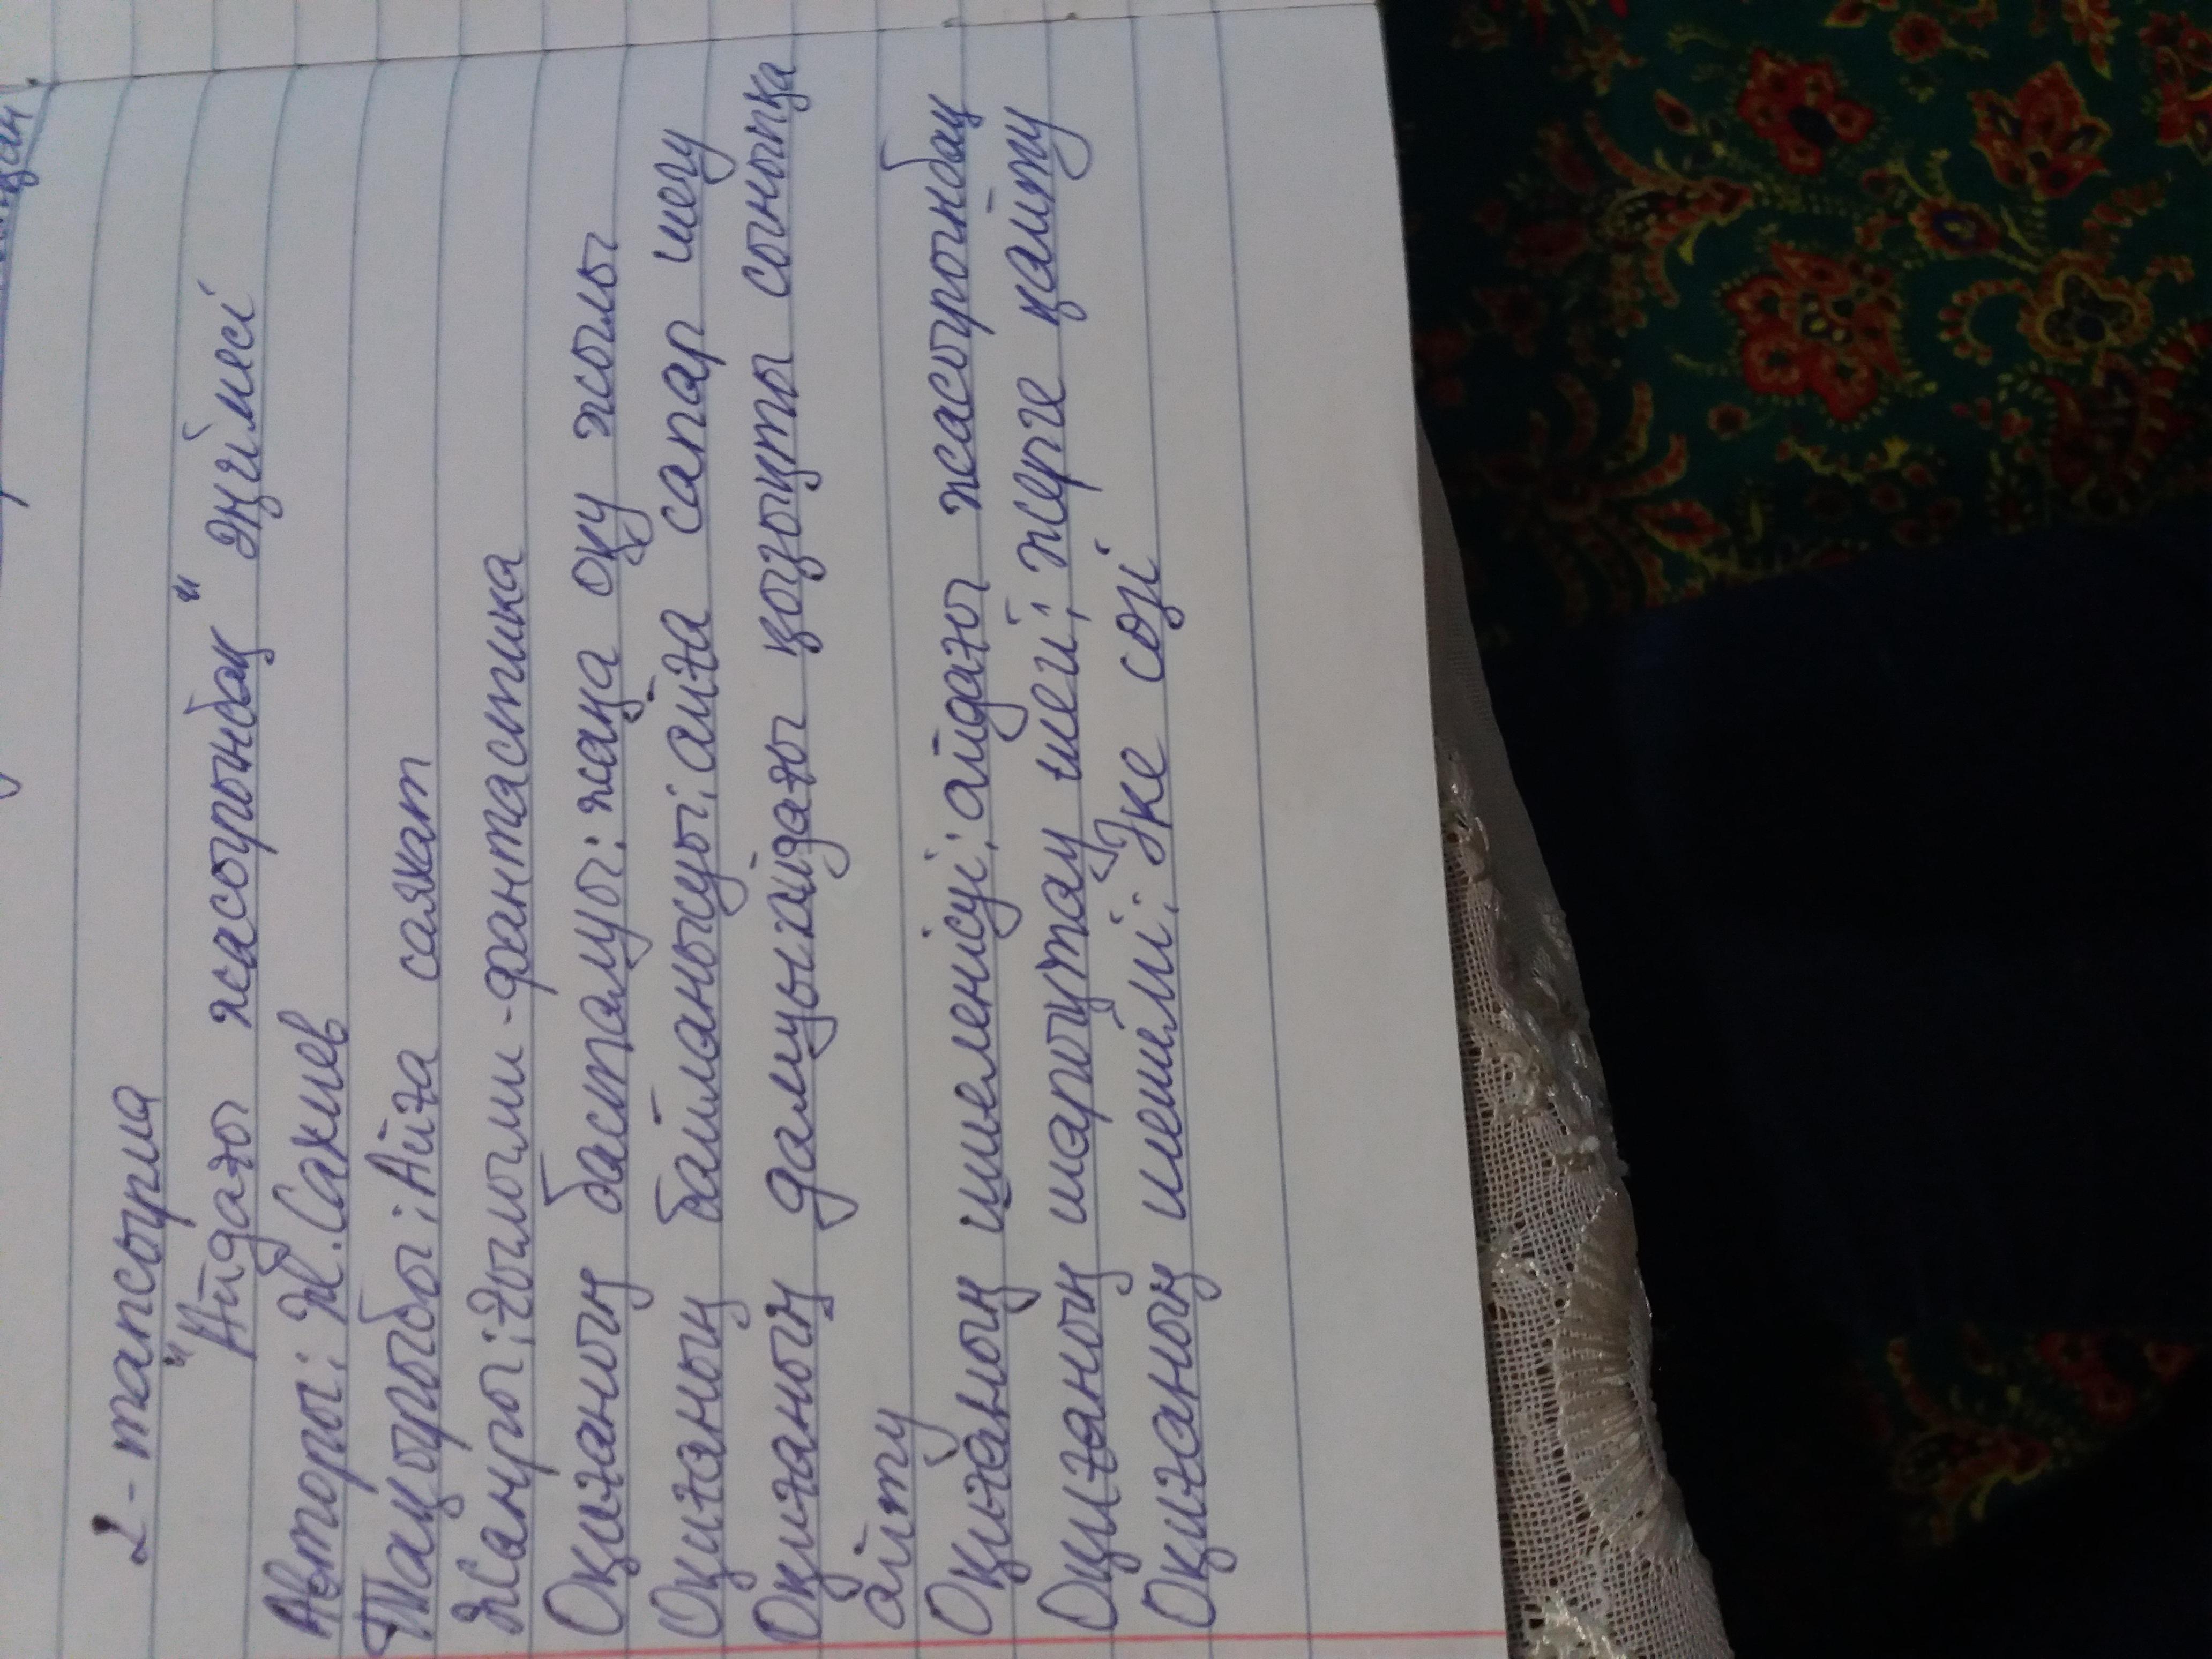 2-тапсырма
"Айдағы жасырынбақ" әңгімесі
Авторы: Ж. Сахиев
Тақырыбы: Айға саяхат
Жанры: ғылыми-фантастика
Оқиғаның басталуы: жаңа оқу жылы
Оқиғаның байланысуы: айға сапар шегу
Оқиғаның дамуы: айдағы қызықты сыныпқа
айту
Оқиғаның шиеленісуі: айдағы жасырынбақ
Оқиғаның шарықтау шегі: жерге қайту
Оқиғаның шешімі: Әке сөзі